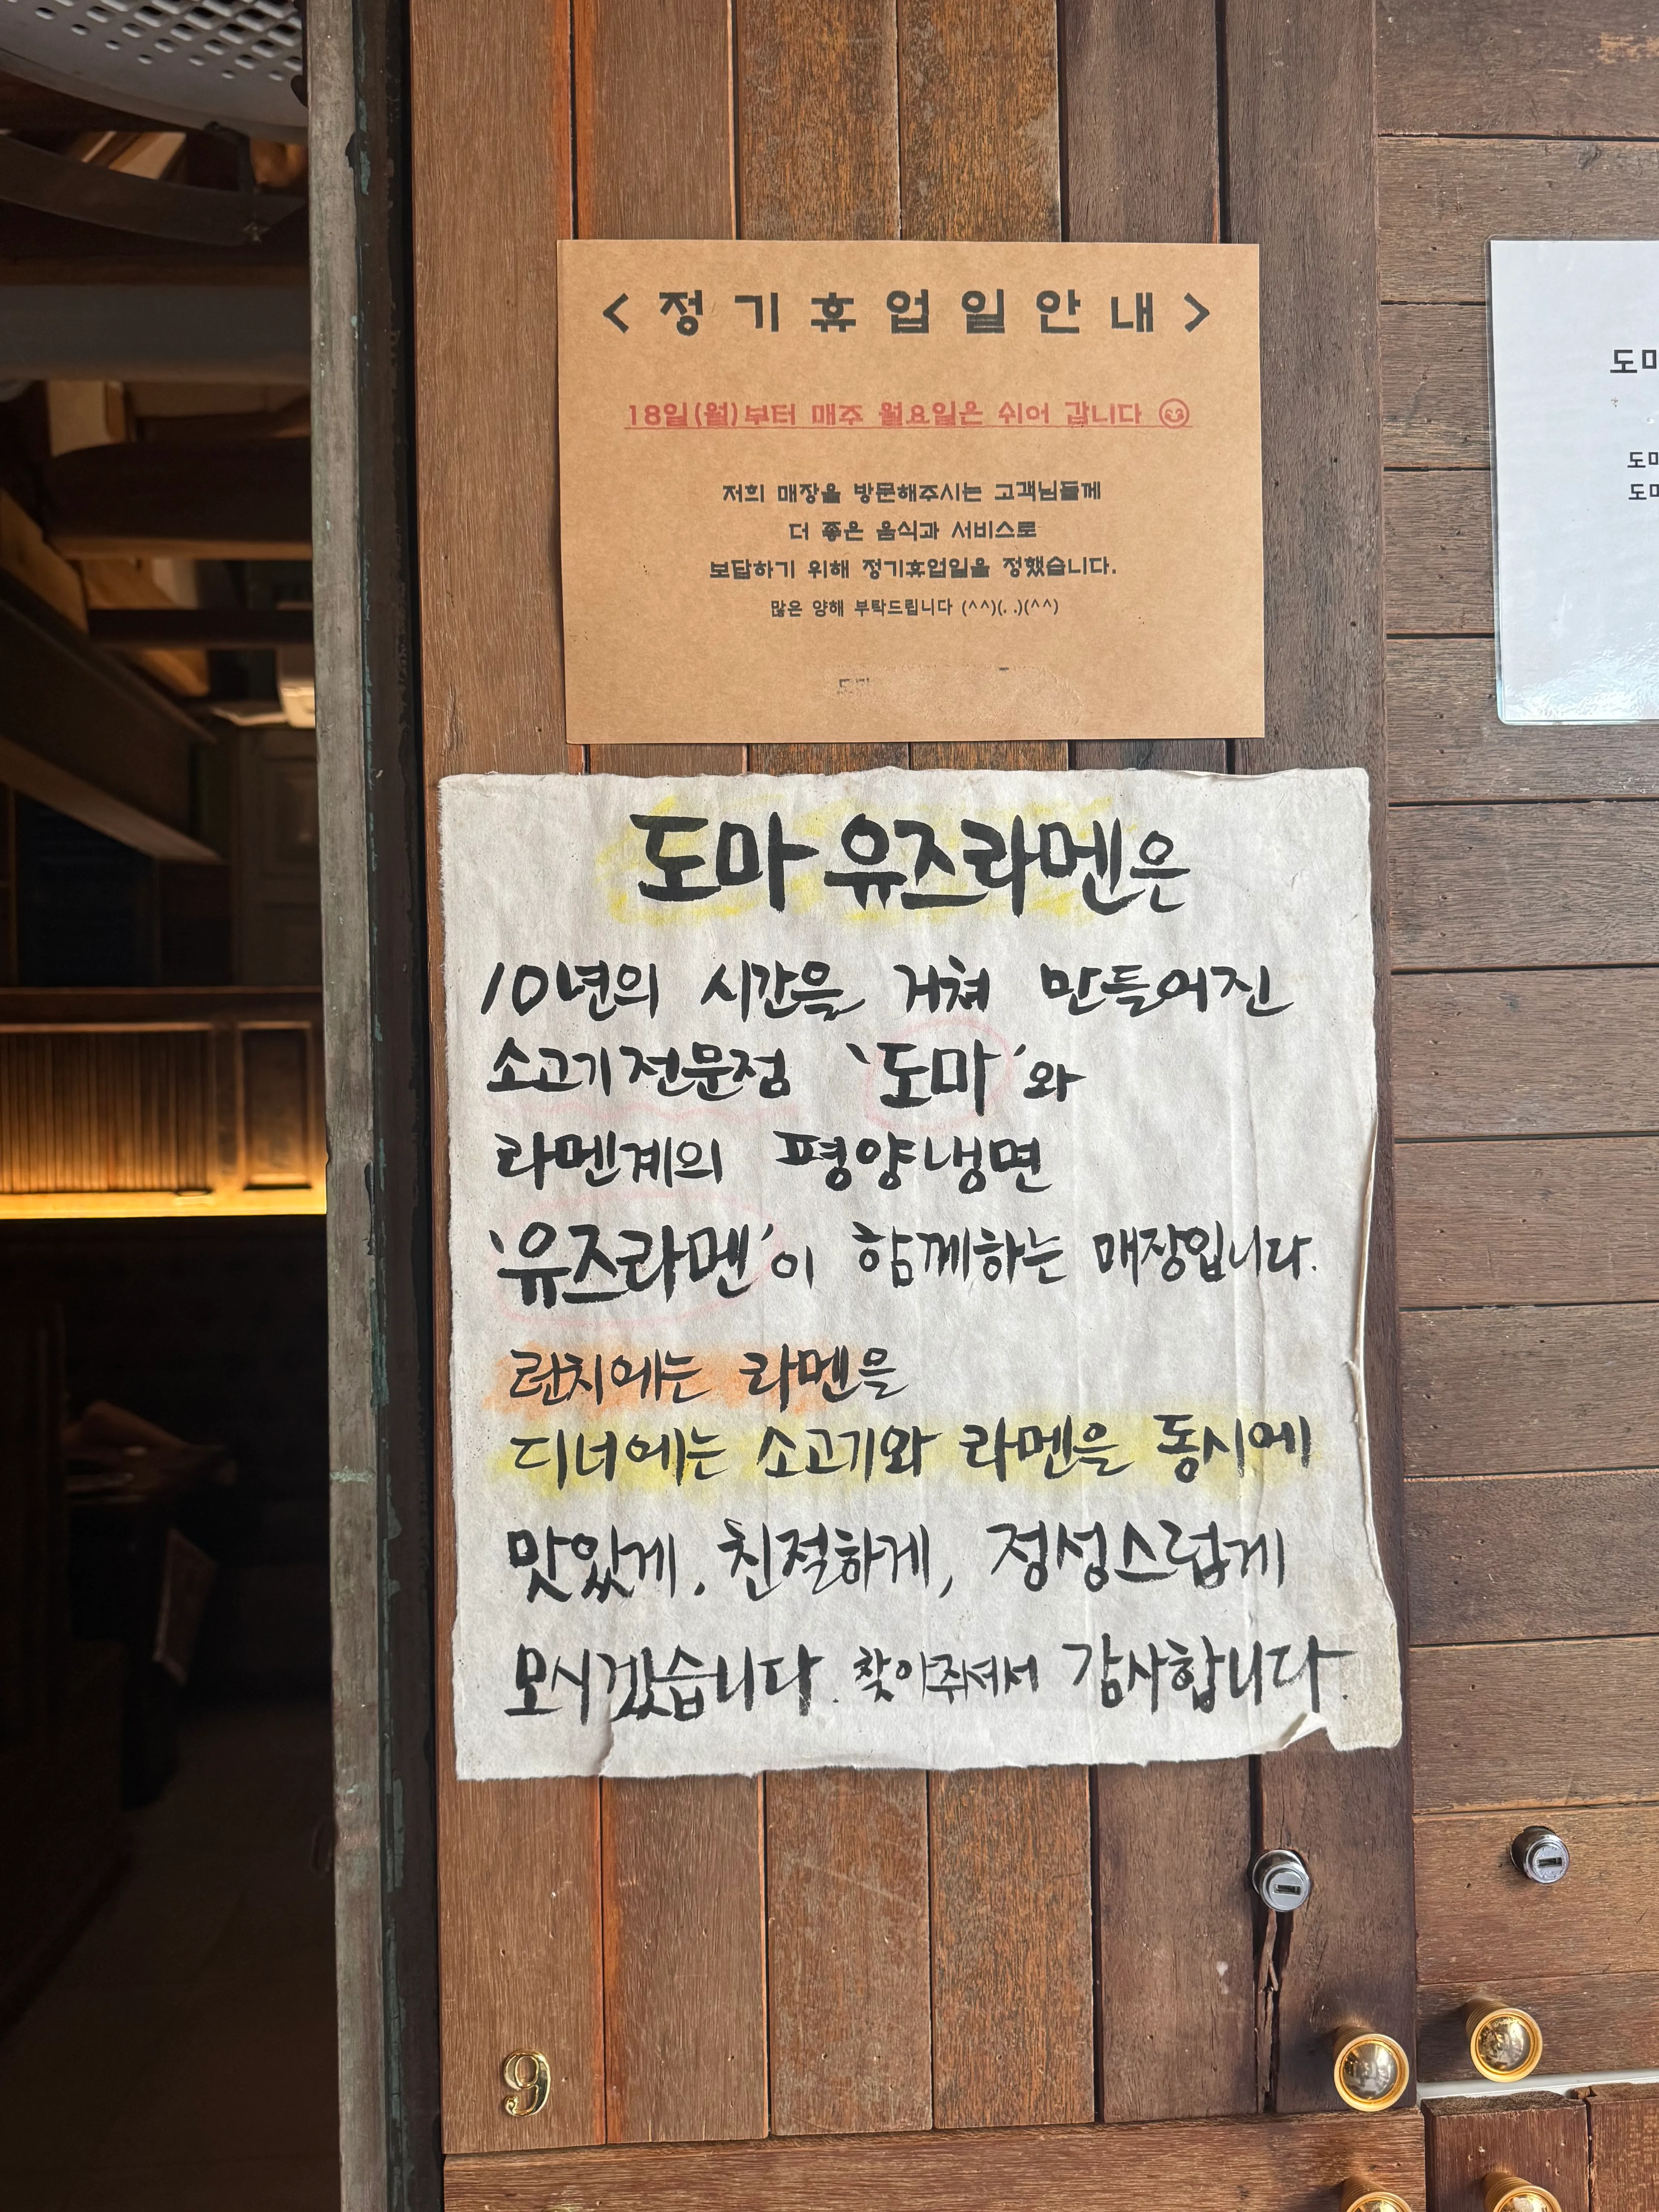 < 정기휴업일안내 >
18일(월)부터 매주 월요일은 쉬어 갑니다
저희 매장을 방문해주시는 고객님들께
더 좋은 음식과 서비스로
보답하기 위해 정기휴업일을 정했습니다.
많은 양해 부탁드립니다 (^^)(. .)(^^)
도마 유즈라멘은
10년의 시간을 거쳐 만들어진
소고기전문점 '도마'와
라멘계의 평양냉면
'유즈라멘'이 함께하는 매장입니다.
런치에는 라멘을
디너에는 소고기와 라멘을 동시에
맛있게, 친절하게, 정성스럽게
모시겠습니다. 찾아주셔서 감사합니다.
9